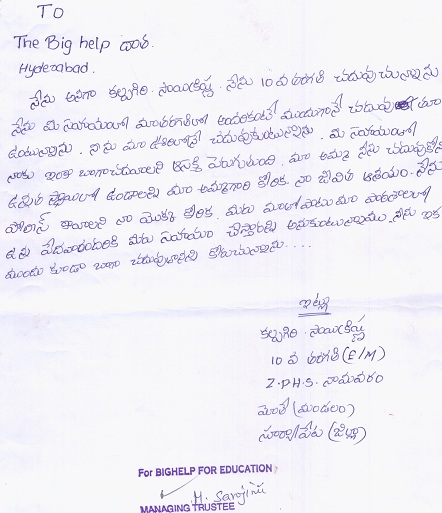 TO
The Big help దాత.
Hyderabad.
నేను అనగా కల్బగిరి. సాయికృష్ణ. నేను 10 వ తరగతి చదువుచున్నాను
నేను మీ సహాయంతో మా తరగతిలో అందరికంటే ముందుగానే చదువు
ఉంటున్నాను. నేను మా ఊరిలోనే చదువుకుంటున్నాను. మీ సహాయంతో
నాకు ఇంకా బాగా చదవాలని ఆసక్తి పెరుగుతుంది. మా అమ్మ నేను చదువుకొని
ఉన్నత స్థాయిలో ఉండాలన్నది మా అమ్మగారి కోరిక. నా జీవిత ఆశయం. నేను
పోలీస్ కావాలని నా యొక్క కోరిక. మీరు మాతో పాటు మా పాఠశాలలో
పేదవారందరికి మీరు సహాయం చేస్తారని అనుకుంటున్నాము. నేను ఇక
ముందు కూడా బాగా చదువుతానని కోరుచున్నాను....
ఇట్లు
కల్బగిరి. సాయికృష్ణ
10 వ తరగతి (E/M)
Z.P.H.S. నామవరం
మోతె (మండలం)
సూర్యాపేట (జిల్లా)
For BIGHELP FOR EDUCATION
M. Sarojini
MANAGING TRUSTEE